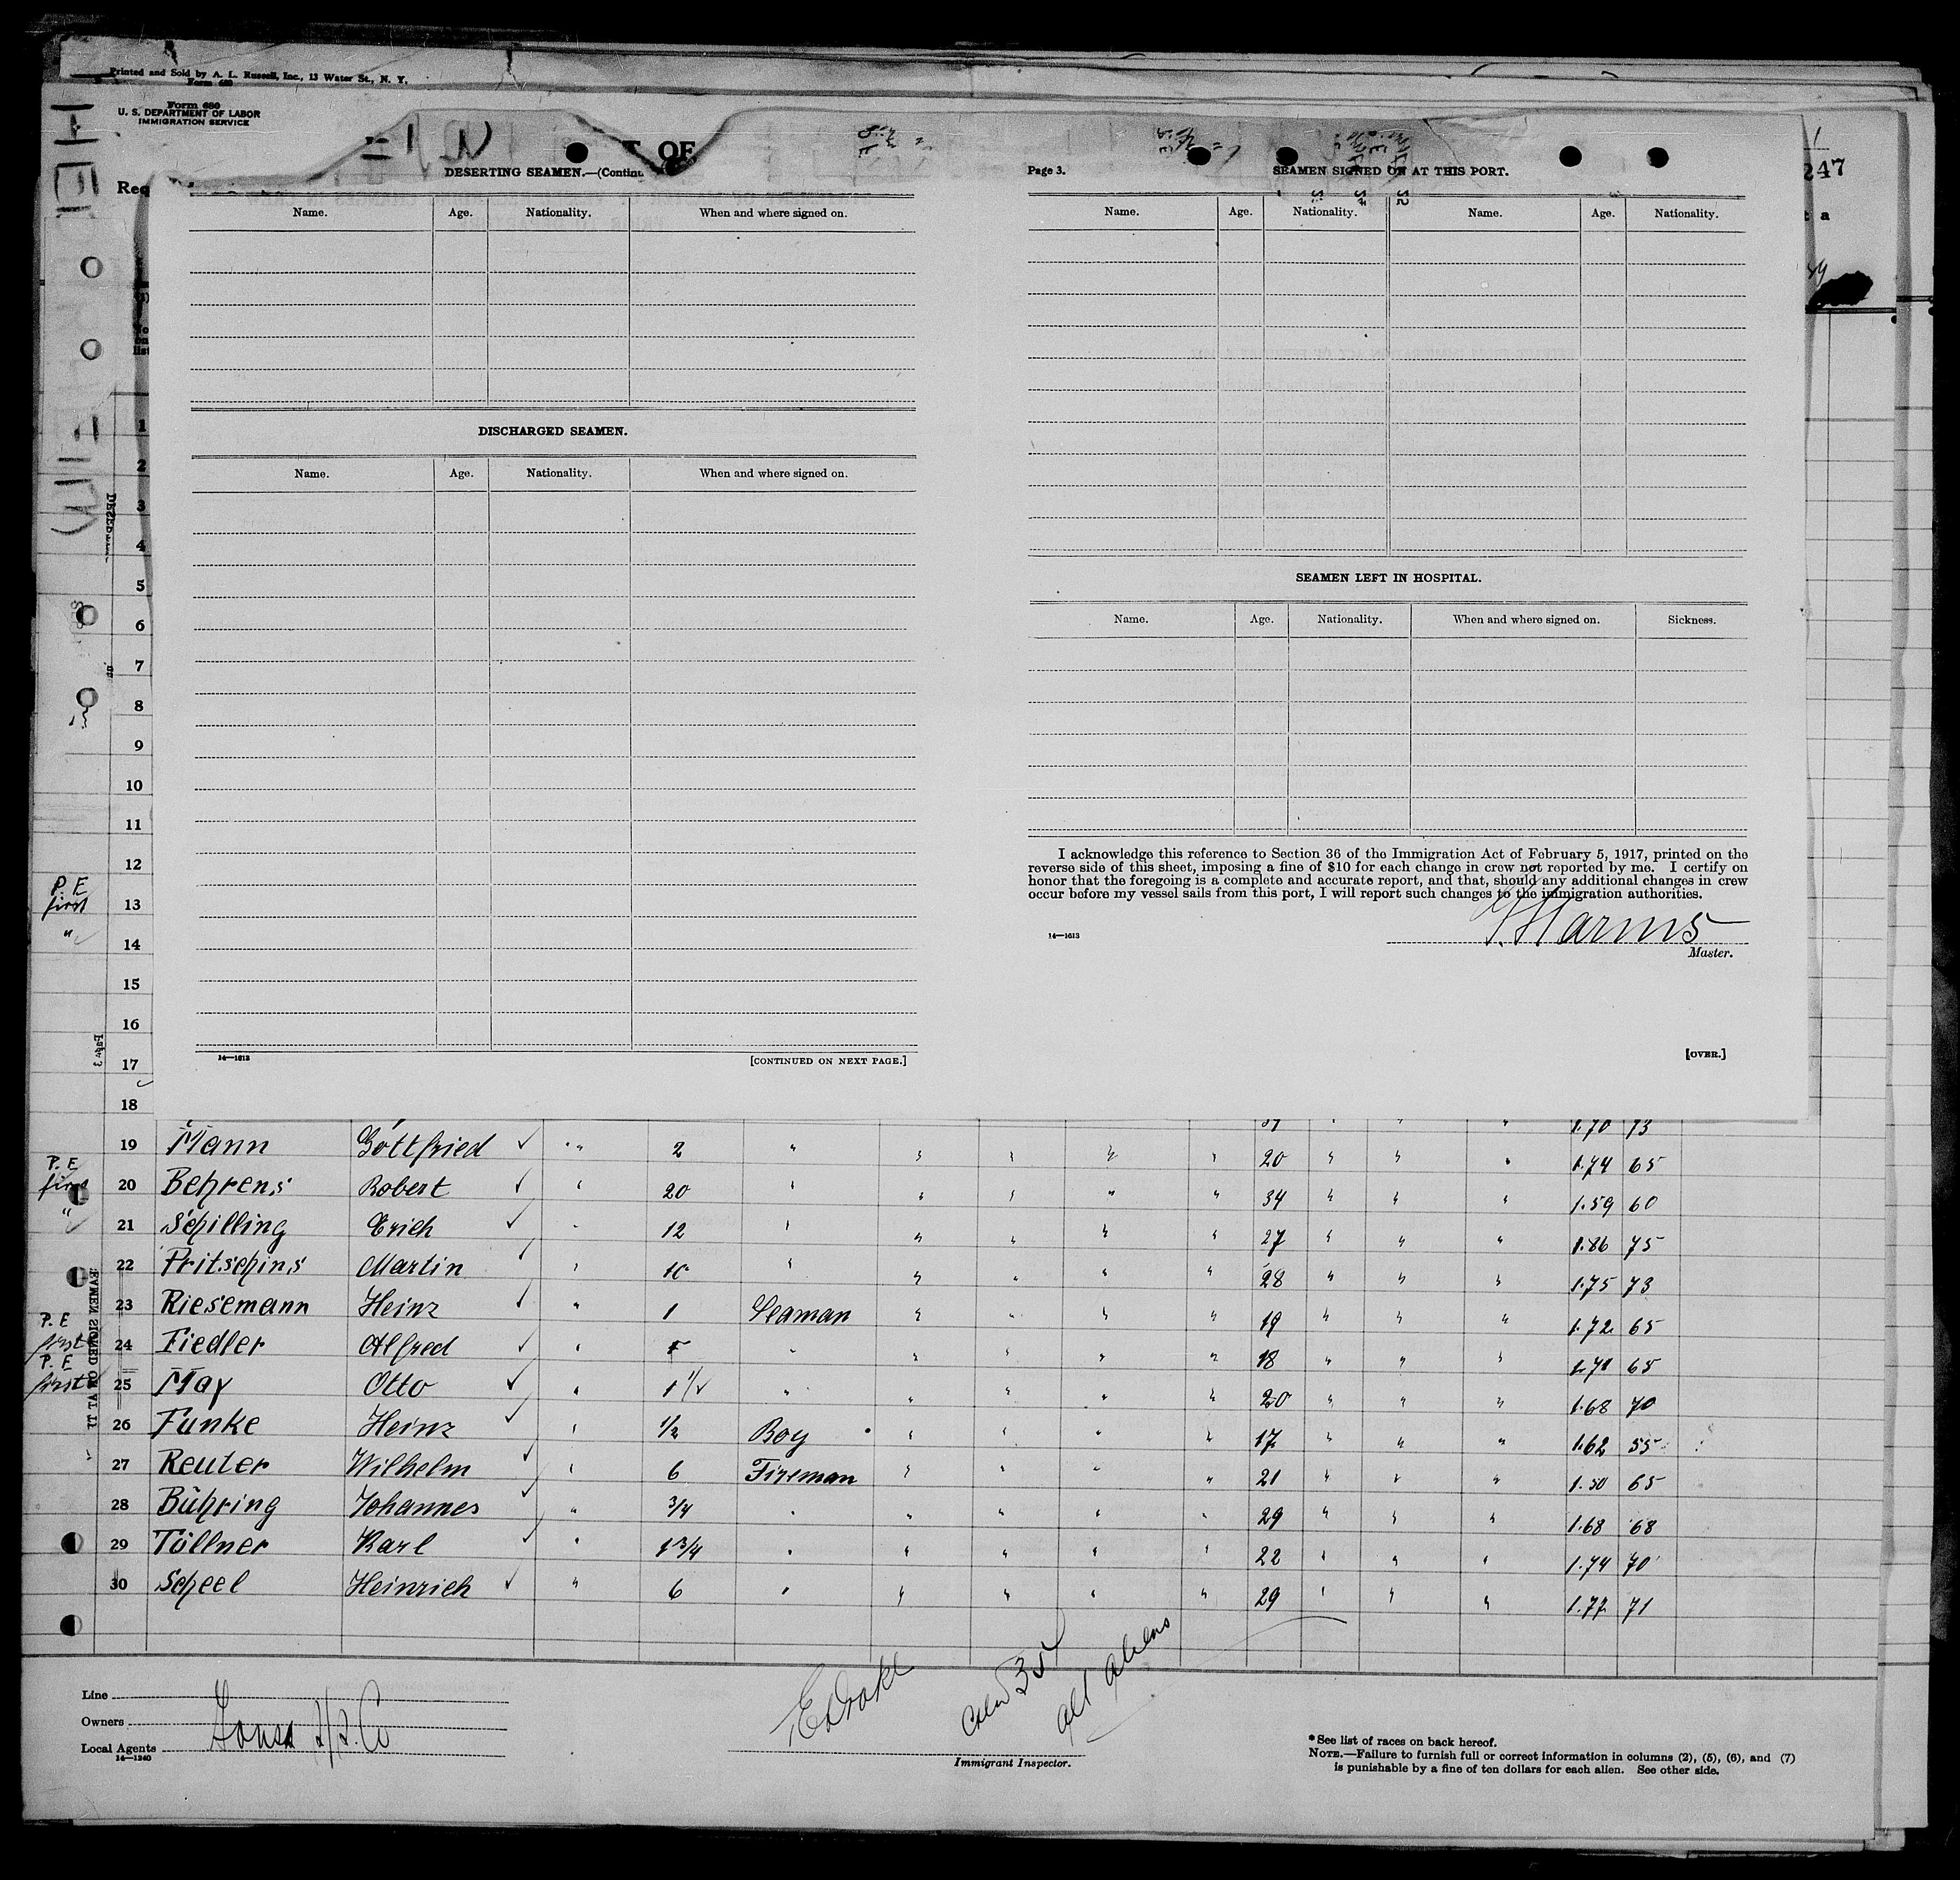 Printed and Sold by A. L. Russell, Inc., 13 Water St., N. Y.
Form 680
Form 680
U. S. DEPARTMENT OF LABOR
IMMIGRATION SERVICE
OF
247
Req
DESERTING SEAMEN.—(Contin
Name. Age. Nationality. When and where signed on.
DISCHARGED SEAMEN.
Name. Age. Nationality. When and where signed on.
14—1613 [CONTINUED ON NEXT PAGE.]
Page 3. SEAMEN SIGNED ON AT THIS PORT.
Name. Age. Nationality. Name. Age. Nationality.
SEAMEN LEFT IN HOSPITAL.
Name. Age. Nationality. When and where signed on. Sickness.
I acknowledge this reference to Section 36 of the Immigration Act of February 5, 1917, printed on the
reverse side of this sheet, imposing a fine of $10 for each change in crew not reported by me. I certify on
honor that the foregoing is a complete and accurate report, and that, should any additional changes in crew
occur before my vessel sails from this port, I will report such changes to the immigration authorities.
Harms
14—1613
Master.
[OVER.]
1
2
3
4
5
6
7
8
9
10
11
12
P. E
first 13
" 14
15
16
17
18 1.70 73
19 Mann Gottfried ✓ " 2 " " " " " 20 " " " 1.74 65
P. E
first 20 Behrens Robert ✓ " 20 " " " " " 34 " " " 1.59 60
" 21 Schilling Erich ✓ " 12 " " " " " 27 " " " 1.86 75
22 Pritschins Martin ✓ " 10 " " " " " 28 " " " 1.75 73
23 Riesemann Heinz ✓ " 1 Seaman " " " " 19 " " " 1.72 65
P. E
first 24 Fiedler Alfred ✓ " " " " " " 18 " " " 1.71 65
P. E
first 25 May Otto ✓ " 1 1/2 " " " " " 20 " " " 1.68 70
26 Funke Heinz ✓ " 1/2 Boy " " " " 17 " " " 1.62 55
27 Reuter Wilhelm ✓ " 6 Fireman " " " " 21 " " " 1.50 65
28 Bühring Johannes ✓ " 3/4 " " " " " 29 " " " 1.68 68
29 Töllner Karl ✓ " 1 3/4 " " " " " 22 " " " 1.74 70
30 Scheel Heinrich ✓ " 6 " " " " " 29 " " " 1.77 71
Line
Owners
Local Agents
14—1240
Immigrant Inspector.
35
all aliens
*See list of races on back hereof.
NOTE.—Failure to furnish full or correct information in columns (2), (5), (6), and (7)
is punishable by a fine of ten dollars for each alien. See other side.